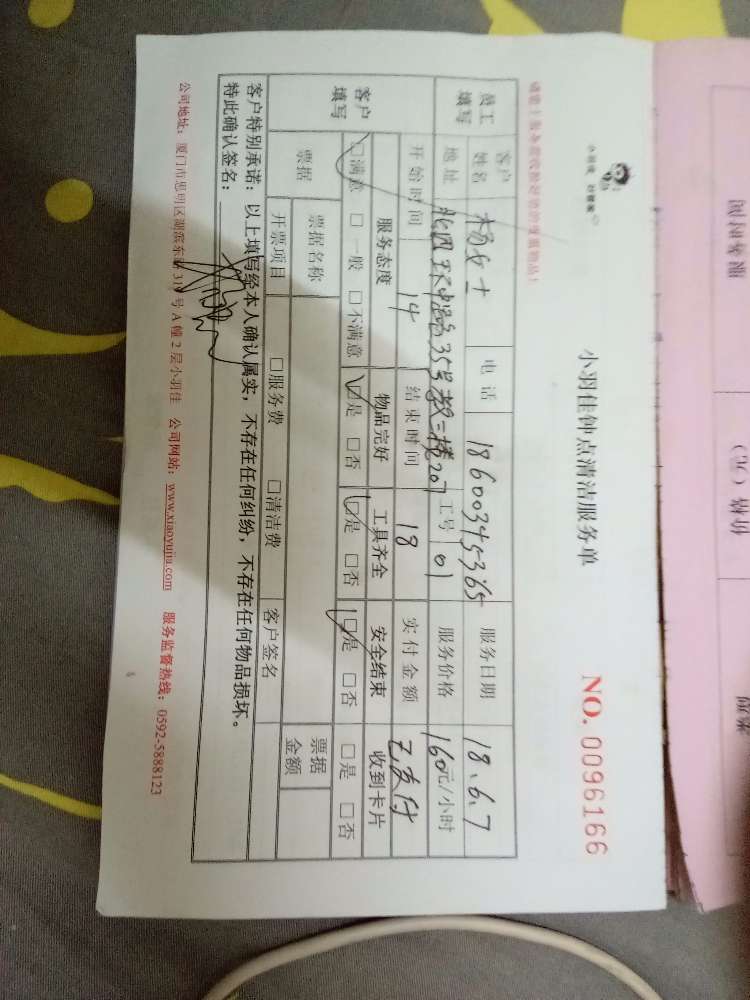 小羽佳钟点清洁服务单
NO. 0096166
员工填写 客户姓名 杨女士 电话 18600345365 服务日期 18.6.7
地址 35号 二楼207 工号 01 服务价格 160元/小时
开始时间 14 结束时间 18 实付金额 已支付
客户填写 服务态度 物品完好 工具齐全 安全结束 收到卡片
□满意 □一般 □不满意 □是 □否 □是 □否 □是 □否 □是 □否
票据 票据名称 票据金额
开票项目 □服务费 □清洁费 客户签名
客户特别承诺：以上填写经本人确认属实，不存在任何纠纷，不存在任何物品损坏。
特此确认签名：
公司地址：厦门市思明区湖滨东路31 号A幢2层小羽佳 公司网站：www.xiaoyujia.com 服务监督热线：0592-5888123